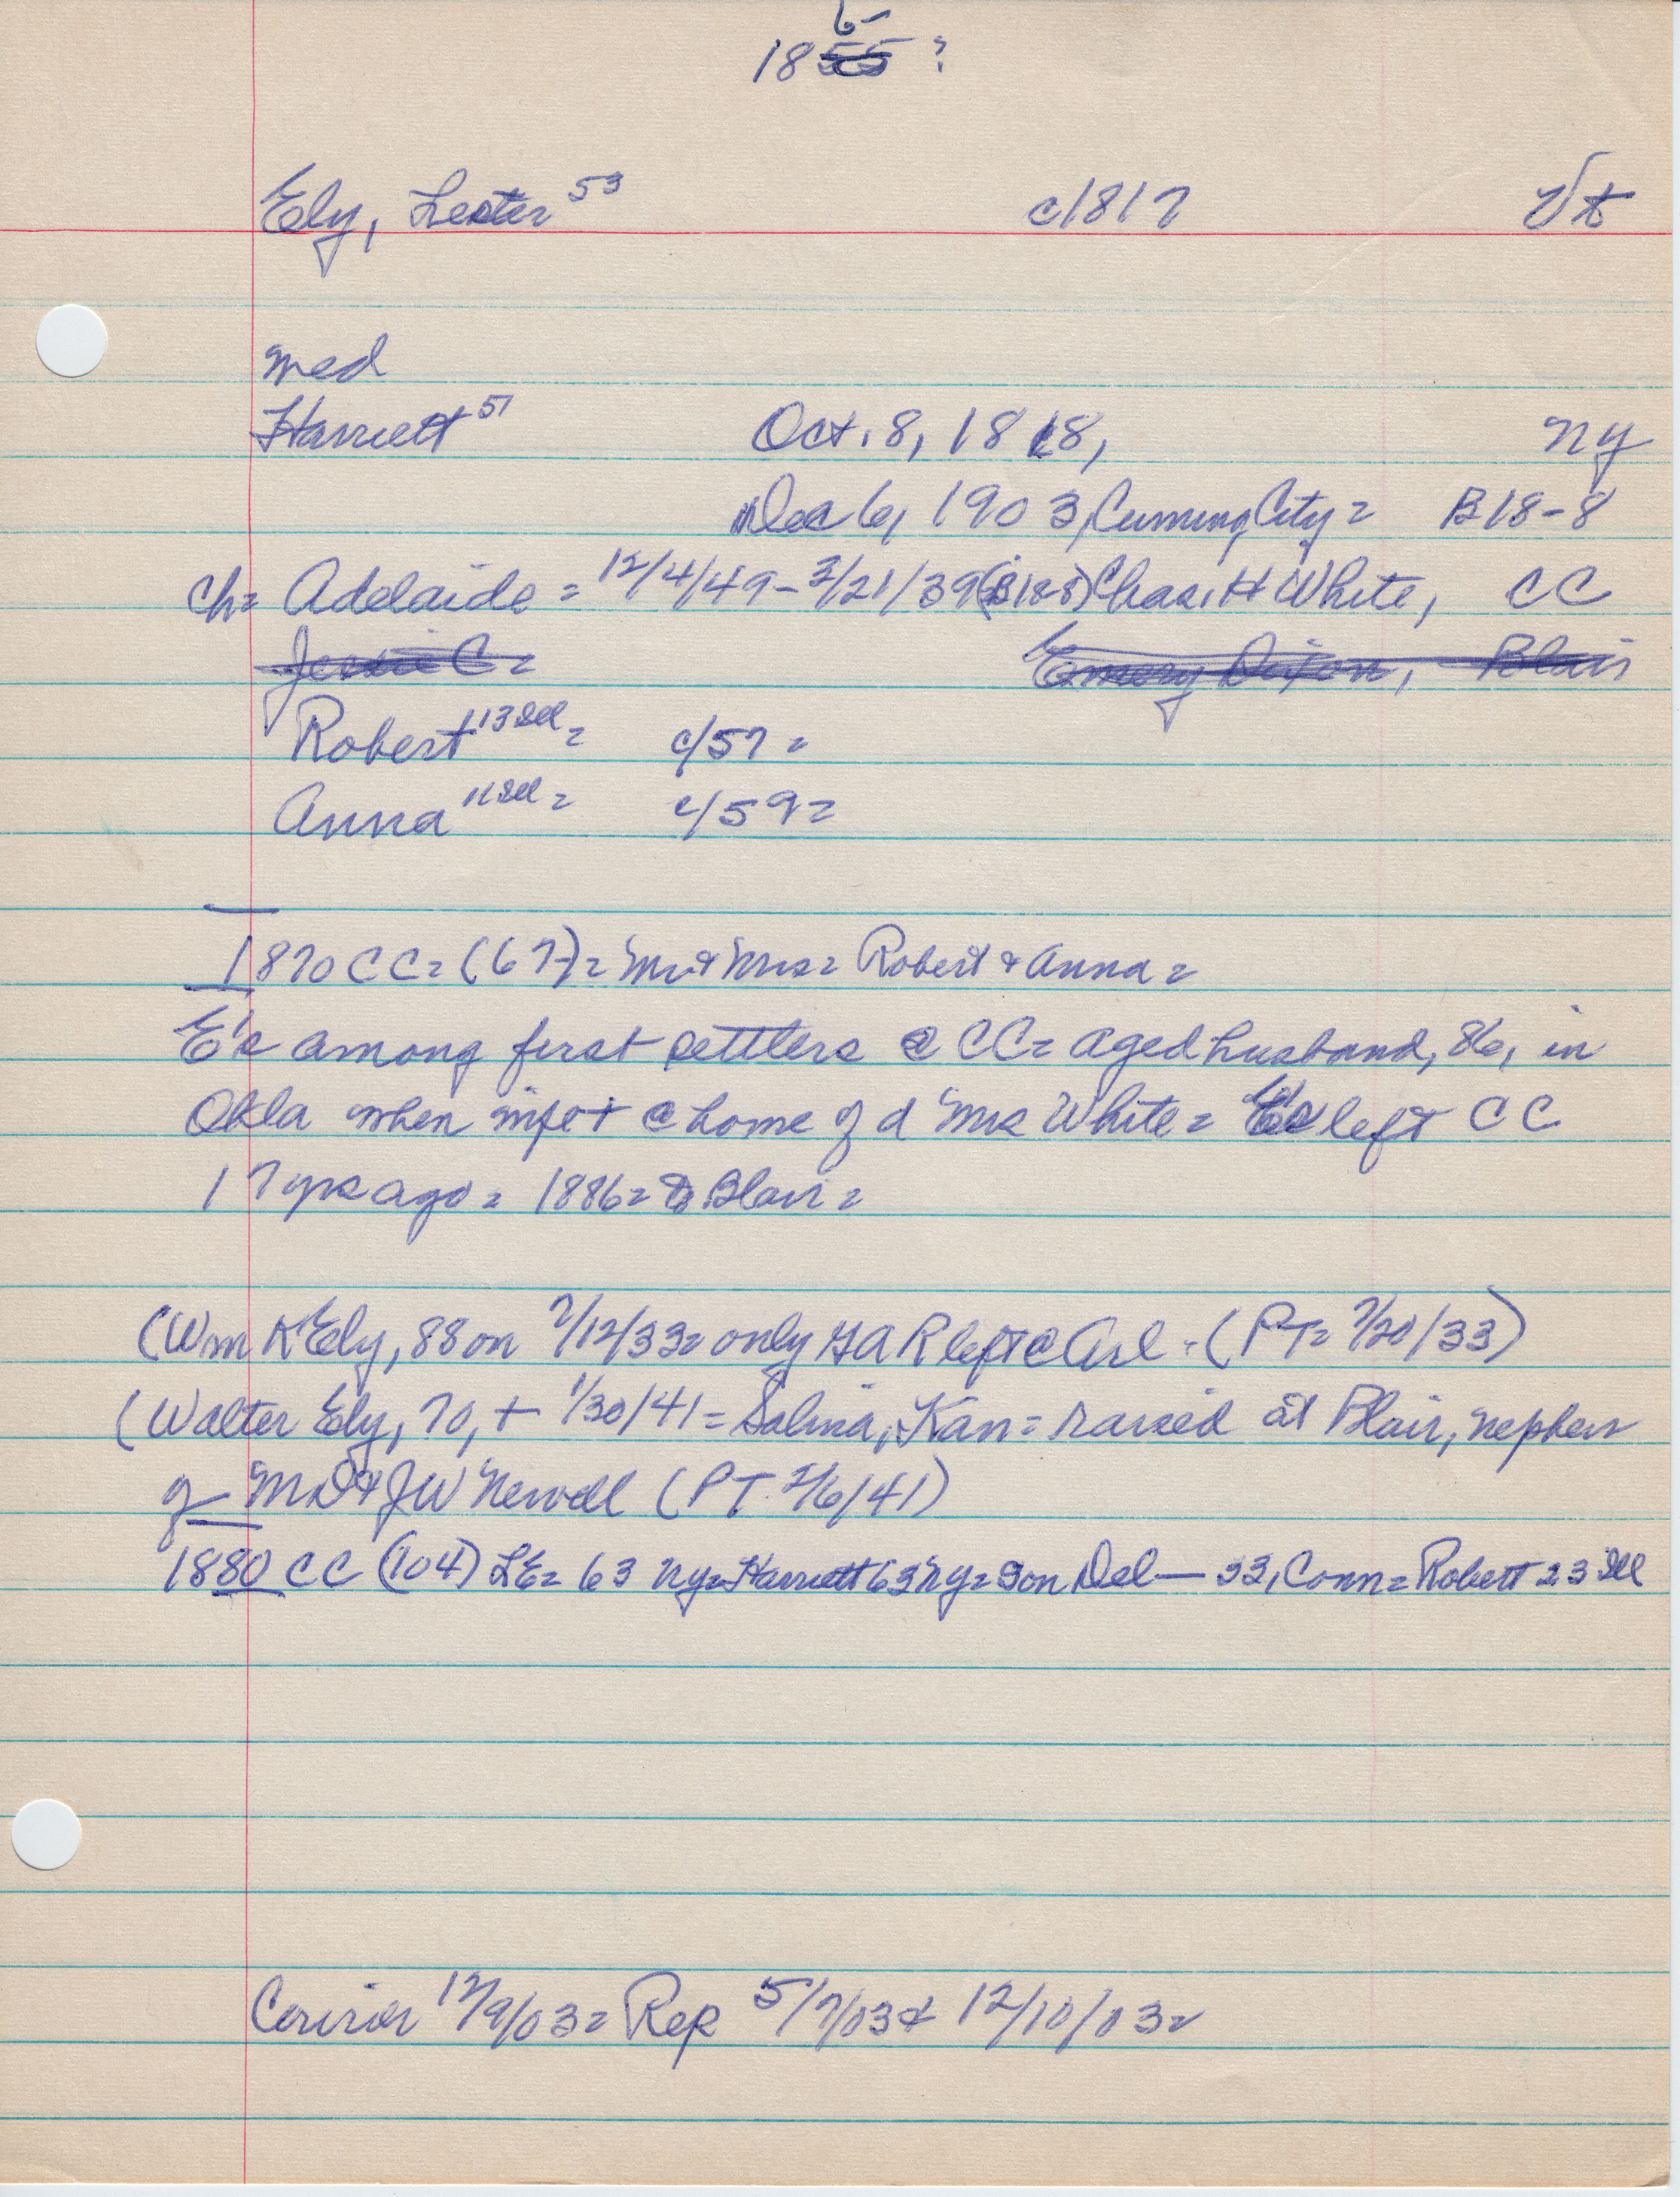 6-
1855 ?
Ely, Lester 53 c1817 Vt
med
Harriett 51 Oct. 8, 1818, NY
Dec 6, 1903, Cuming City = B18-8
ch = Adelaide = 12/4/49 - 3/21/39 (B18-8) Chas. H White, CC
Jessie C = Emery Dixon, Blair
Robert 13 Ill = c/57 =
Anna 11 Ill = c/59 =
1870 CC = (67) = Mr & Mrs = Robert & Anna =
E's among first settlers @ CC = aged husband, 86, in
Okla when wife + @ home of d Mrs White = E's left CC
17 yrs ago = 1886 = to Blair =
(Wm K Ely, 88 on 7/12/33 = only GAR left @ Arl - (PT = 7/20/33)
(Walter Ely, 70, + 1/30/41 = Salina, Kan = raised at Blair, nephew
of MD & JW Newell (PT 2/6/41)
1880 CC (104) LE = 63 NY = Harriett 63 NY = Son Del — 33, Conn = Robert 23 Ill
Courier 12/9/03 = Rep 5/7/03 & 12/10/03 =